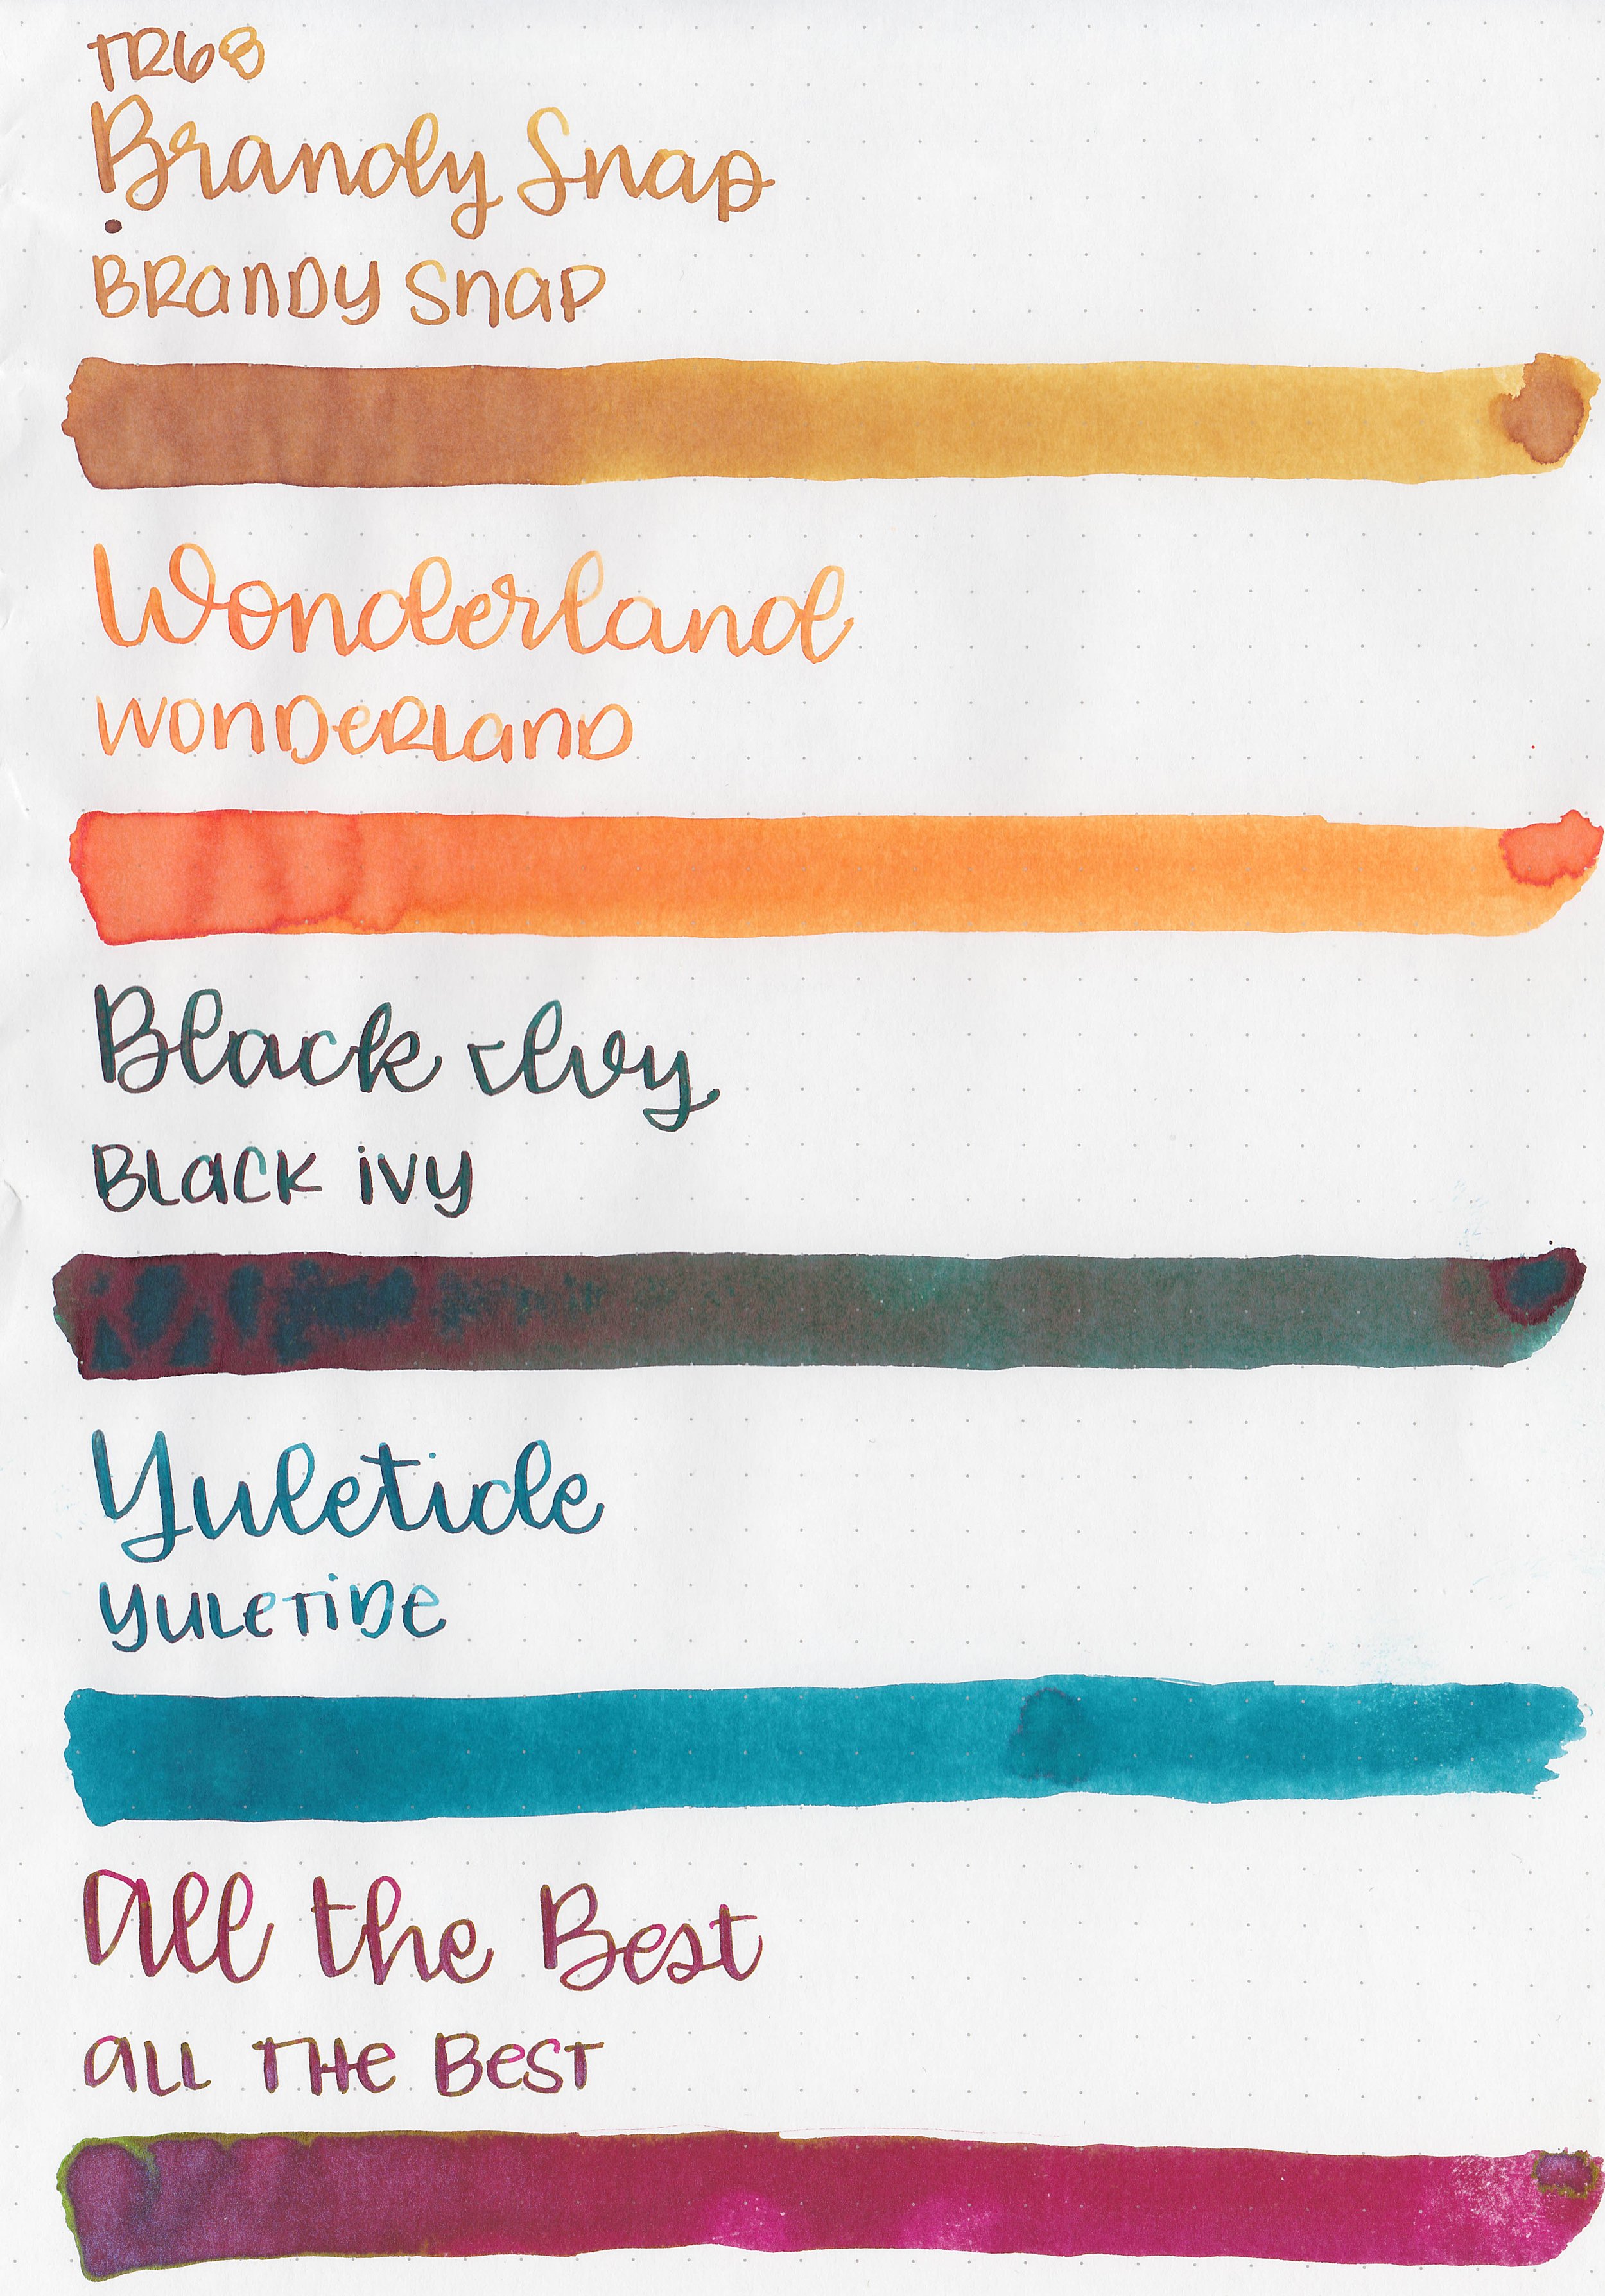 TR68
Brandy Snap
BRanDY SnaP
Wonderland
WONDeRLanD
Black Ivy
BLacK ivy
Yuletide
YULeTiDe
All the Best
aLL THe BesT